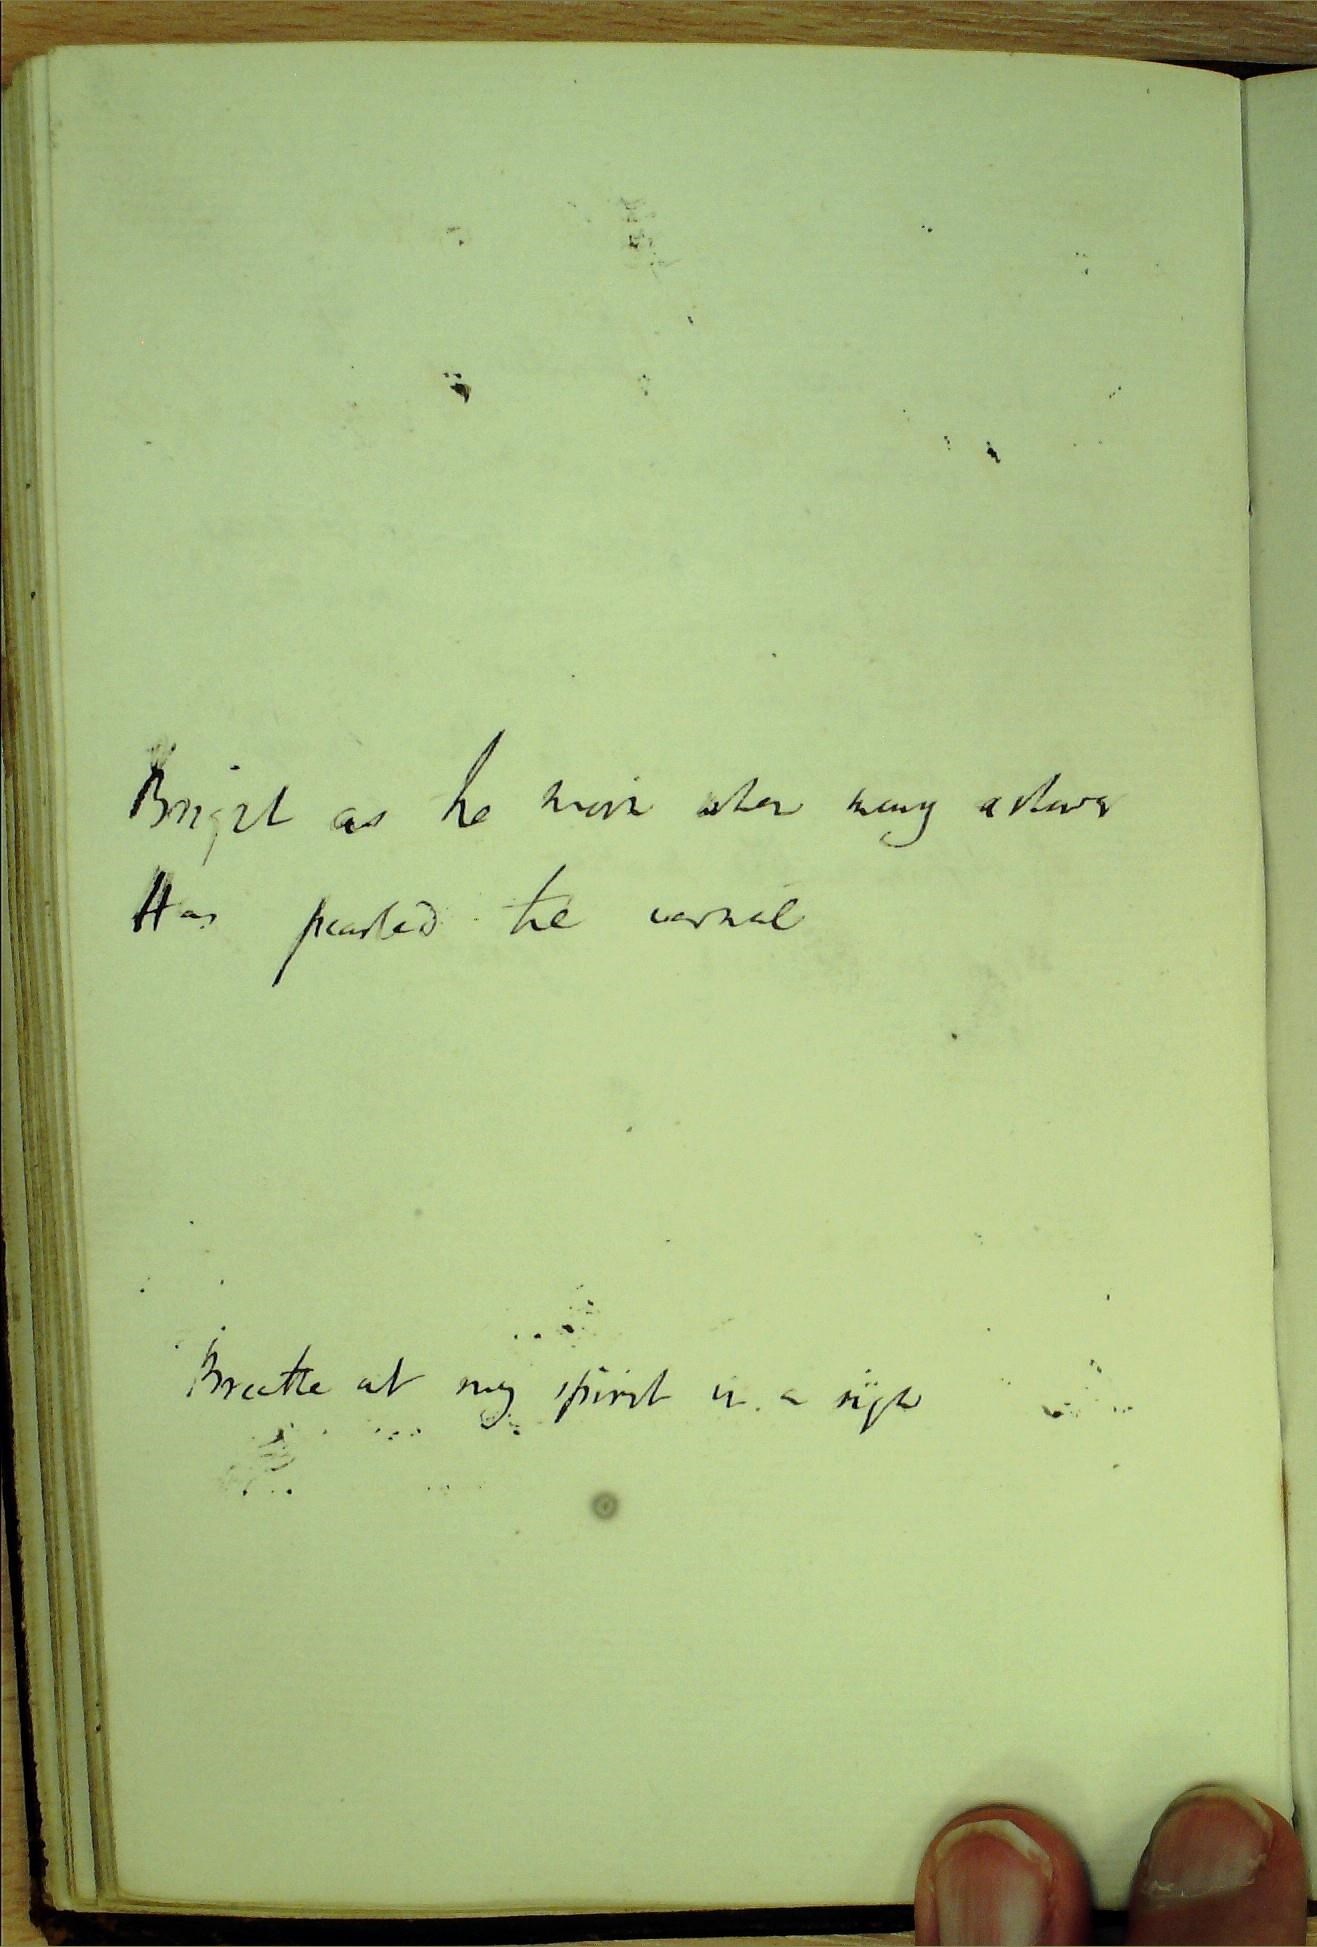 Bright as the morn when many a shower
Has pearled the vernal
Breathe out my spirit in a sigh